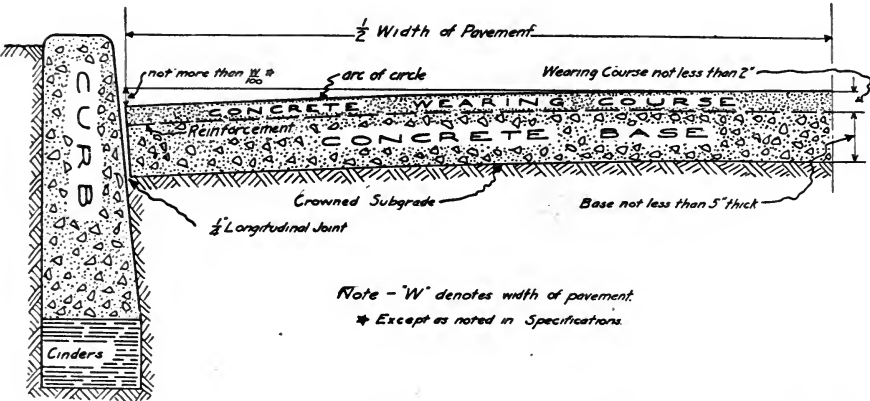 1/2 Width of Pavement
not more than W/100 *
arc of circle
Wearing Course not less than 2"
CURB
CONCRETE WEARING COURSE
Reinforcement
CONCRETE BASE
Crowned Subgrade
Base not less than 5" thick
1/4" Longitudinal Joint
Note - "W" denotes width of pavement.
* Except as noted in Specifications.
Cinders